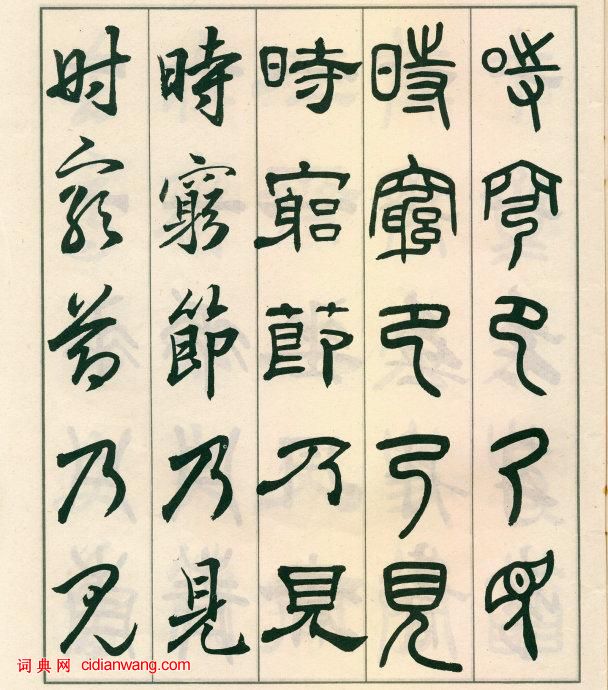 時窮節乃見
時窮節乃見
時窮節乃見
時窮節乃見
時窮節乃見
词典网 cidianwang.com